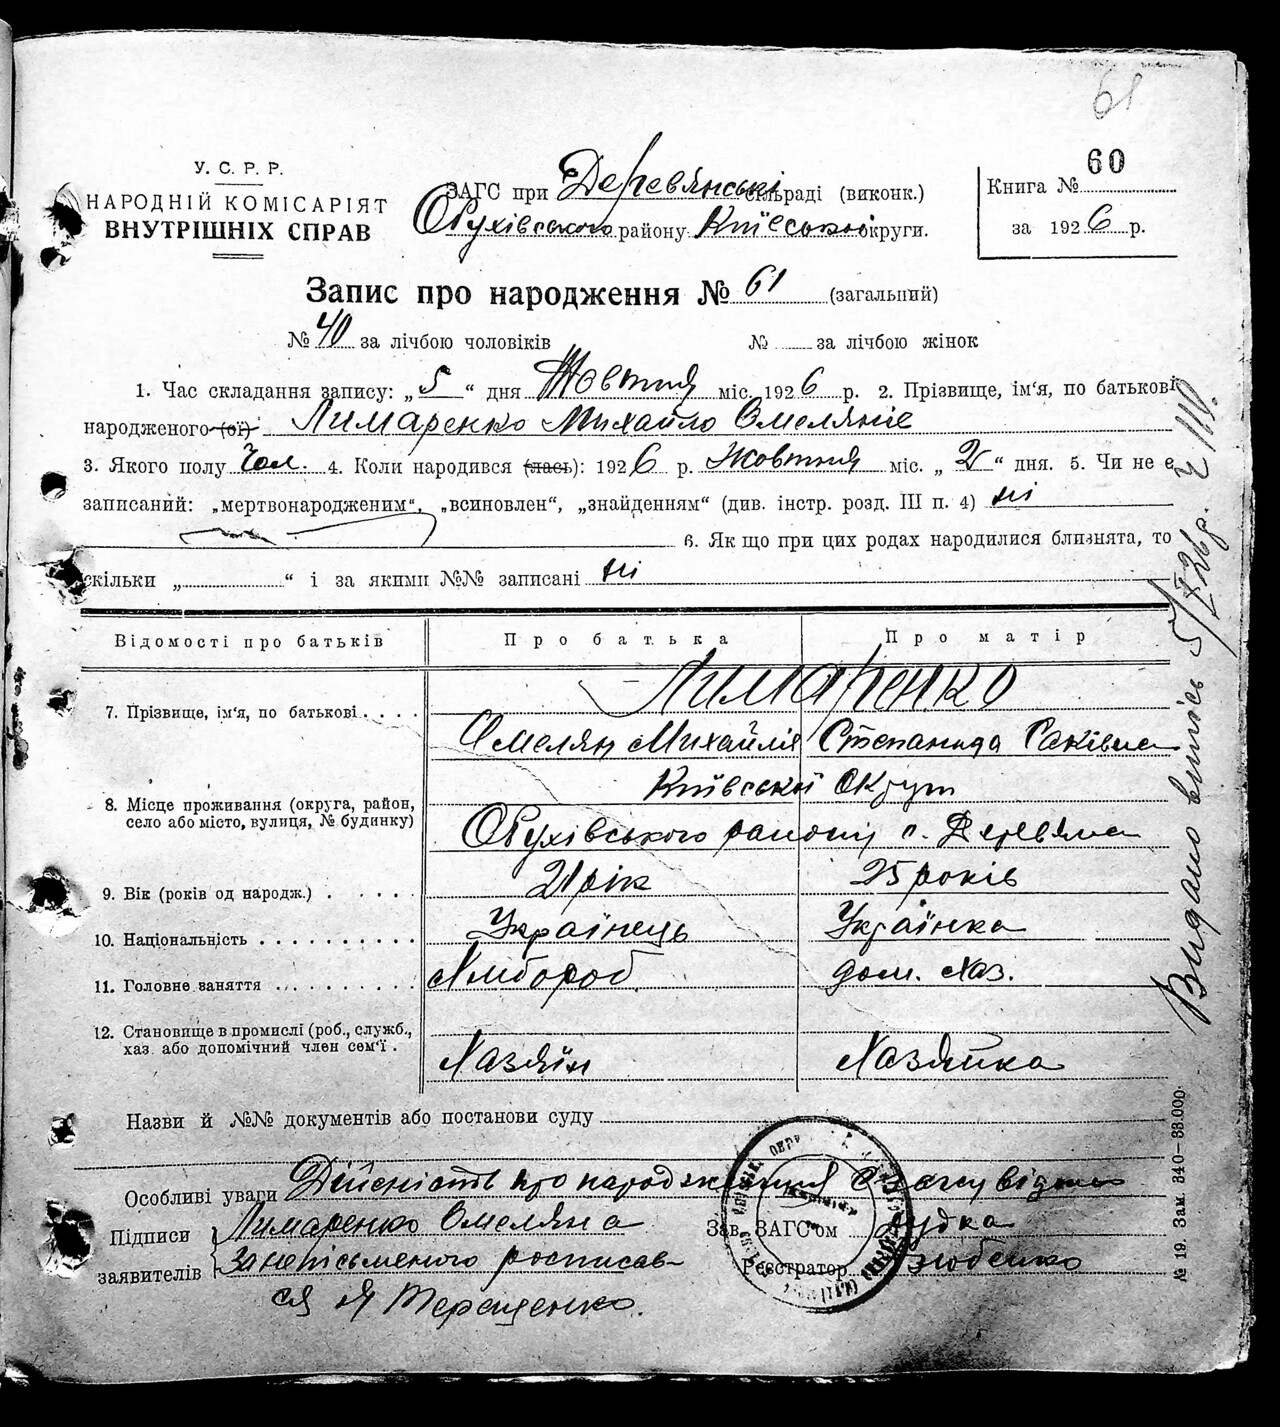 61
60
У. С. Р. Р.
НАРОДНІЙ КОМІСАРІЯТ
ВНУТРІШНІХ СПРАВ
ЗАГС при Деревянські сільраді (виконк.)
Обухівського району Київської округи.
Книга №
за 1926 р.
Запис про народження № 61 (загальний)
№ 40 за лічбою чоловіків № за лічбою жінок
1. Час складання запису: „5“ дня Жовтня міс. 1926 р. 2. Прізвище, ім'я, по батькові
народженого (ої) Лимаренко Михайло Омелянів
3. Якого полу Чол. 4. Коли народився (лась): 1926 р. Жовтня міс. „2“ дня. 5. Чи не є
записаний: „мертвонародженим“, „всиновлен“, „знайденням“ (див. інстр. розд. III п. 4) ні
6. Як що при цих родах народилися близнята, то
скільки „ “ і за якими №№ записані ні
Відомості про батьків Про батька Про матір
7. Прізвище, ім'я, по батькові Лимаренко
Омелян Михайлів Степанида Саківна
8. Місце проживання (округа, район, село або місто, вулиця, № будинку) Київської Округи
Обухівського району с. Деревяна
9. Вік (років од народж.) 21 рік 25 років
10. Національність Українець Українка
11. Головне заняття Хлібороб дом. хаз.
12. Становище в промислі (роб., служб., хаз. або допомічний член сем'ї. Хазяїн Хазяйка
Назви й №№ документів або постанови суду
Особливі уваги Дійсність про народження
Підписи заявителів Лимаренко Омеляна
Занепісьменого росписав-
ся Я Терещенко.
Зав. ЗАГС'ом
Реєстратор
Видано випись 5/X 26 р.
№ 19. Зам. 340—33.000.